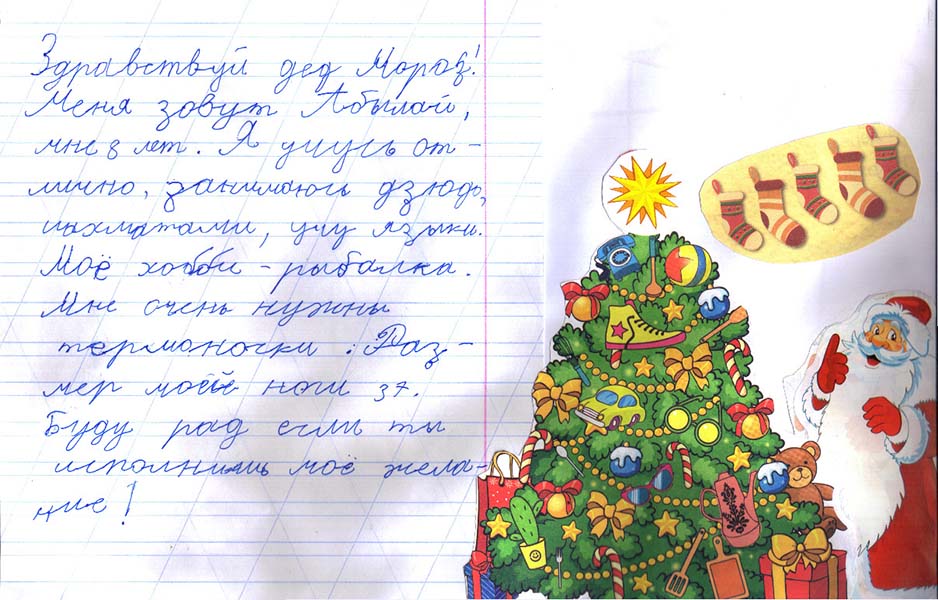 Здравствуй дед Мороз!
Меня зовут Абылай,
мне 8 лет. Я учусь от-
лично, занимаюсь дзюдо,
шахматами, учу языки.
Моё хобби - рыбалка.
Мне очень нужны
термоносочки. Раз-
мер моей ноги 37.
Буду рад если ты
исполнишь моё жела-
ние!